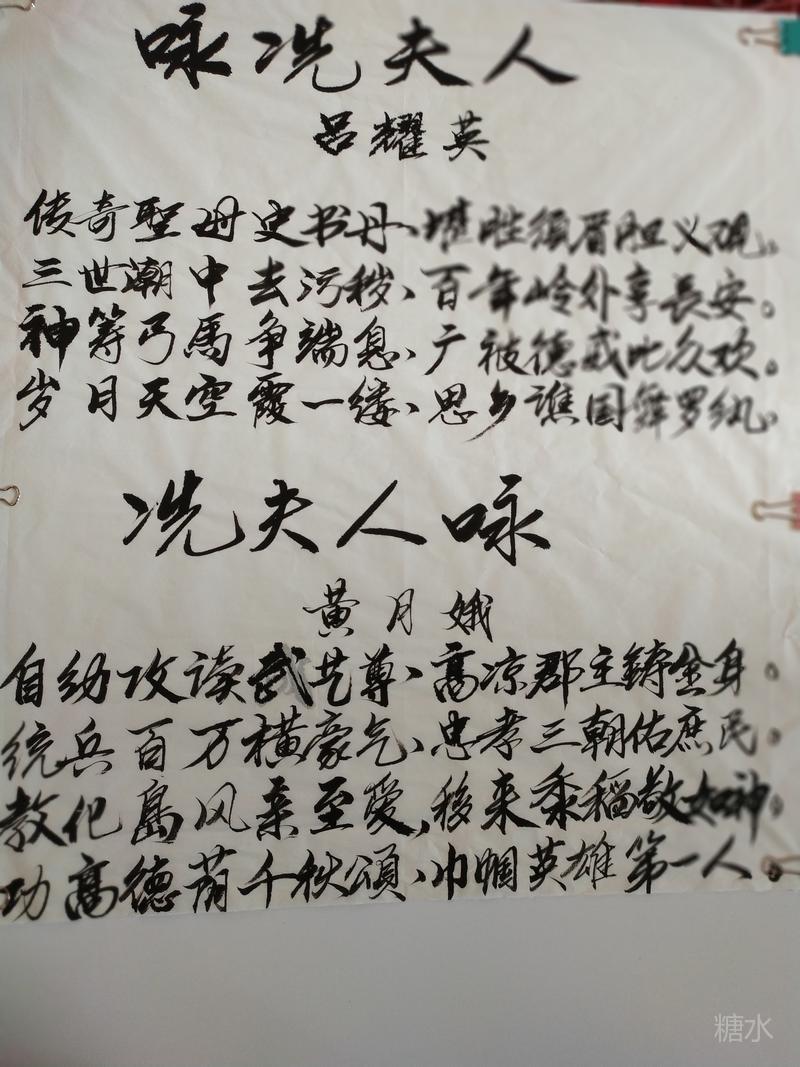 咏冼夫人
吕耀英
传奇聖母史书丹、堪胜须眉胆义观。
三世潮中去污秽、百年岭外享長安。
神筹弓馬争端息、广被德威比众欢。
岁月天空霞一缕、思乡谯国舞罗纨。
冼夫人咏
黄月娥
自幼攻读武艺尊、高凉郡主鋳金身。
统兵百万横豪气、忠孝三朝佑庶民。
教化島风亲至爱,移来黍稻敬如神。
功高德荫千秋頌、巾帼英雄第一人。
糖水